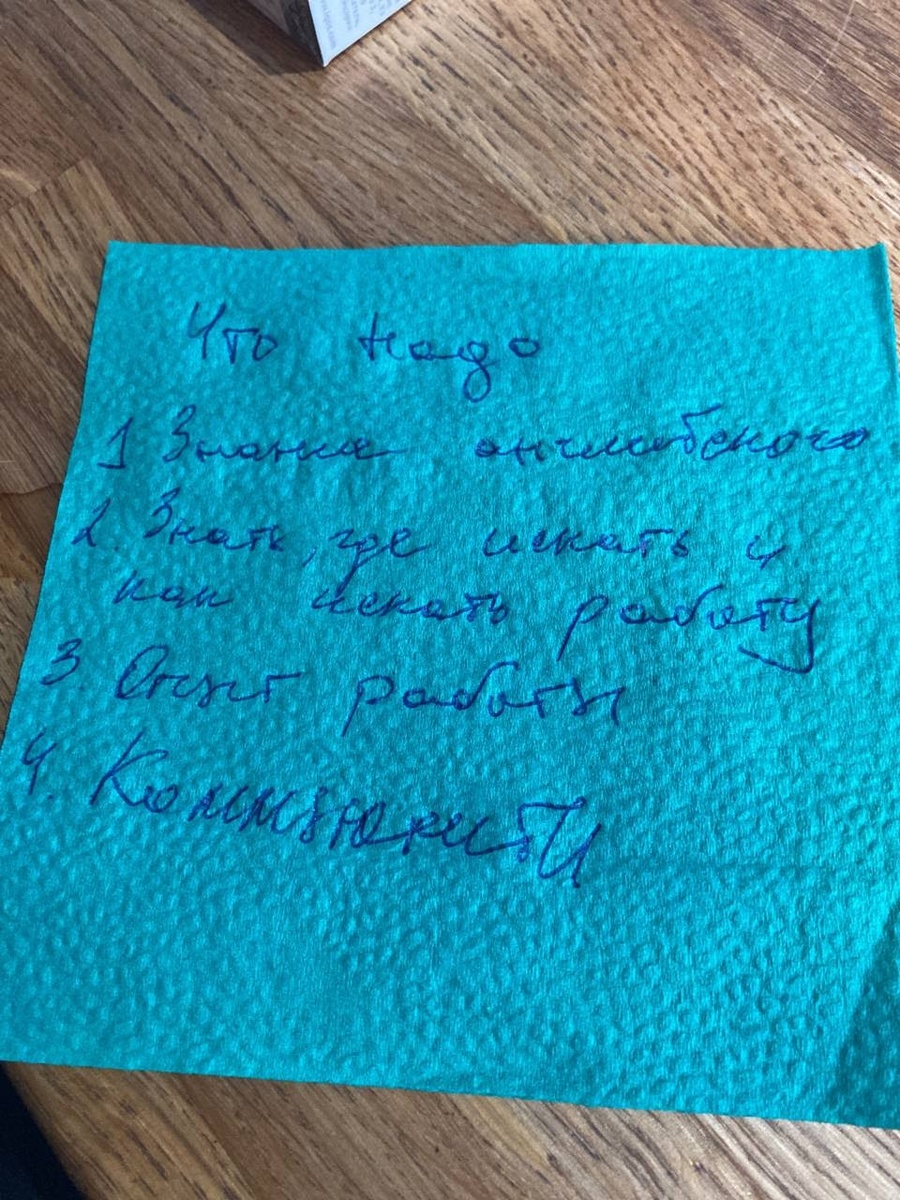 Что надо
1 Знания английского
2. Знать, где искать и
как искать работу
3. Опыт работы
4. Коммьюнити